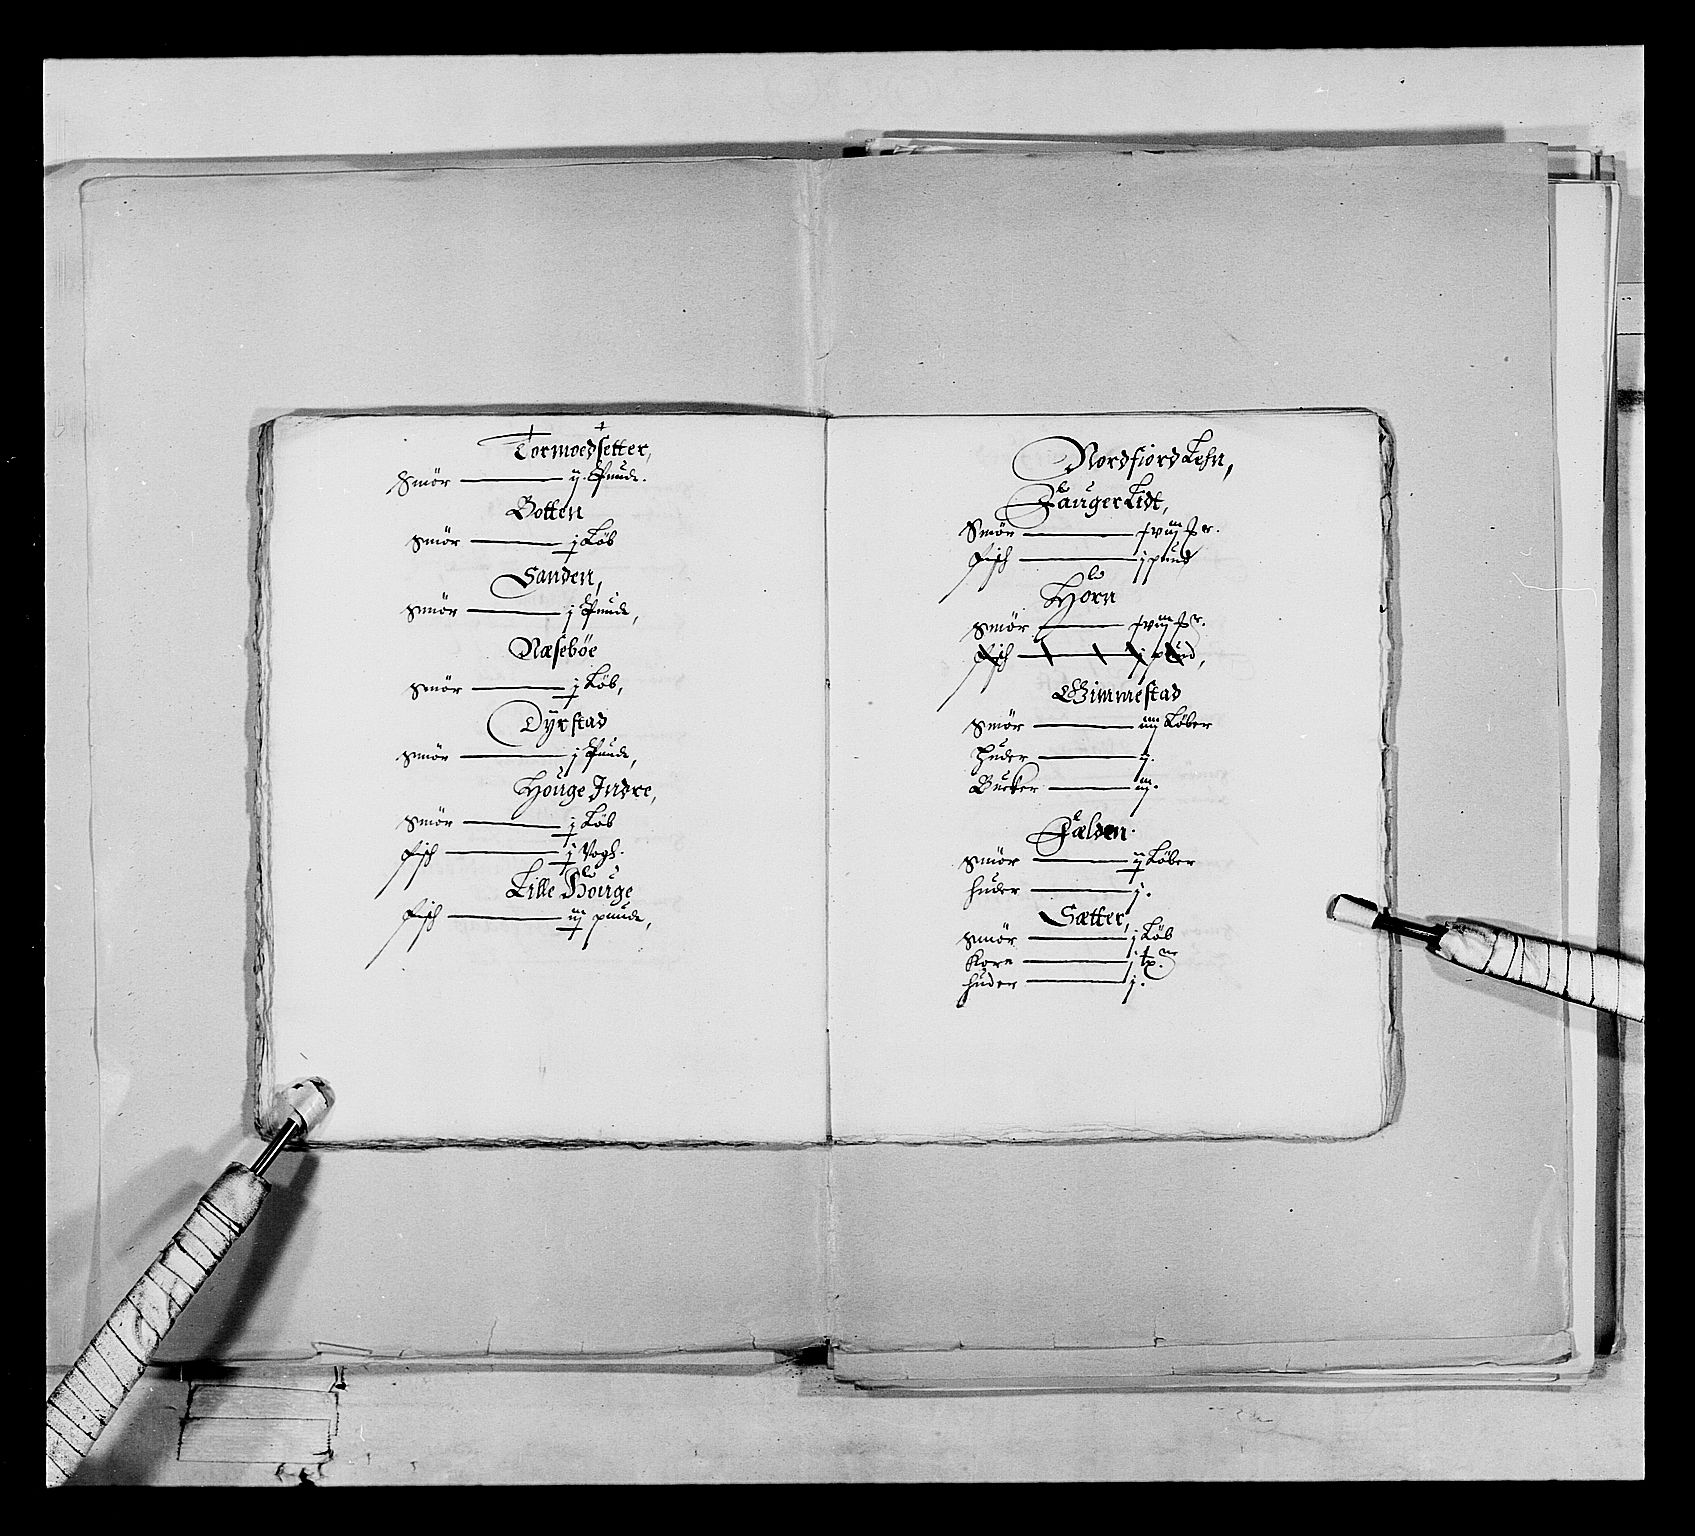 Tormoedsetter,
Smör ij. Pund.
Botten
Smör j Löb
Sanden,
Smör j Pund,
Næseböe
Smör j Löb,
Dÿrstad
Smör j Pund,
Houge Indre,
Smör j Löb
Fisch j Vogh.
Lille Houge
Fisch iij pund,
Nordfiord Lehn,
Faugerlidt,
Smör
Fisch j pund
Horn
Smör
Fisch j pund,
Gimmestad
Smör iiij Löber
Huder ij.
Bucker iij.
Fælden.
Smör ij Löber
Huder j.
Sætter,
Smör j Löb
Korn j
Huder j.